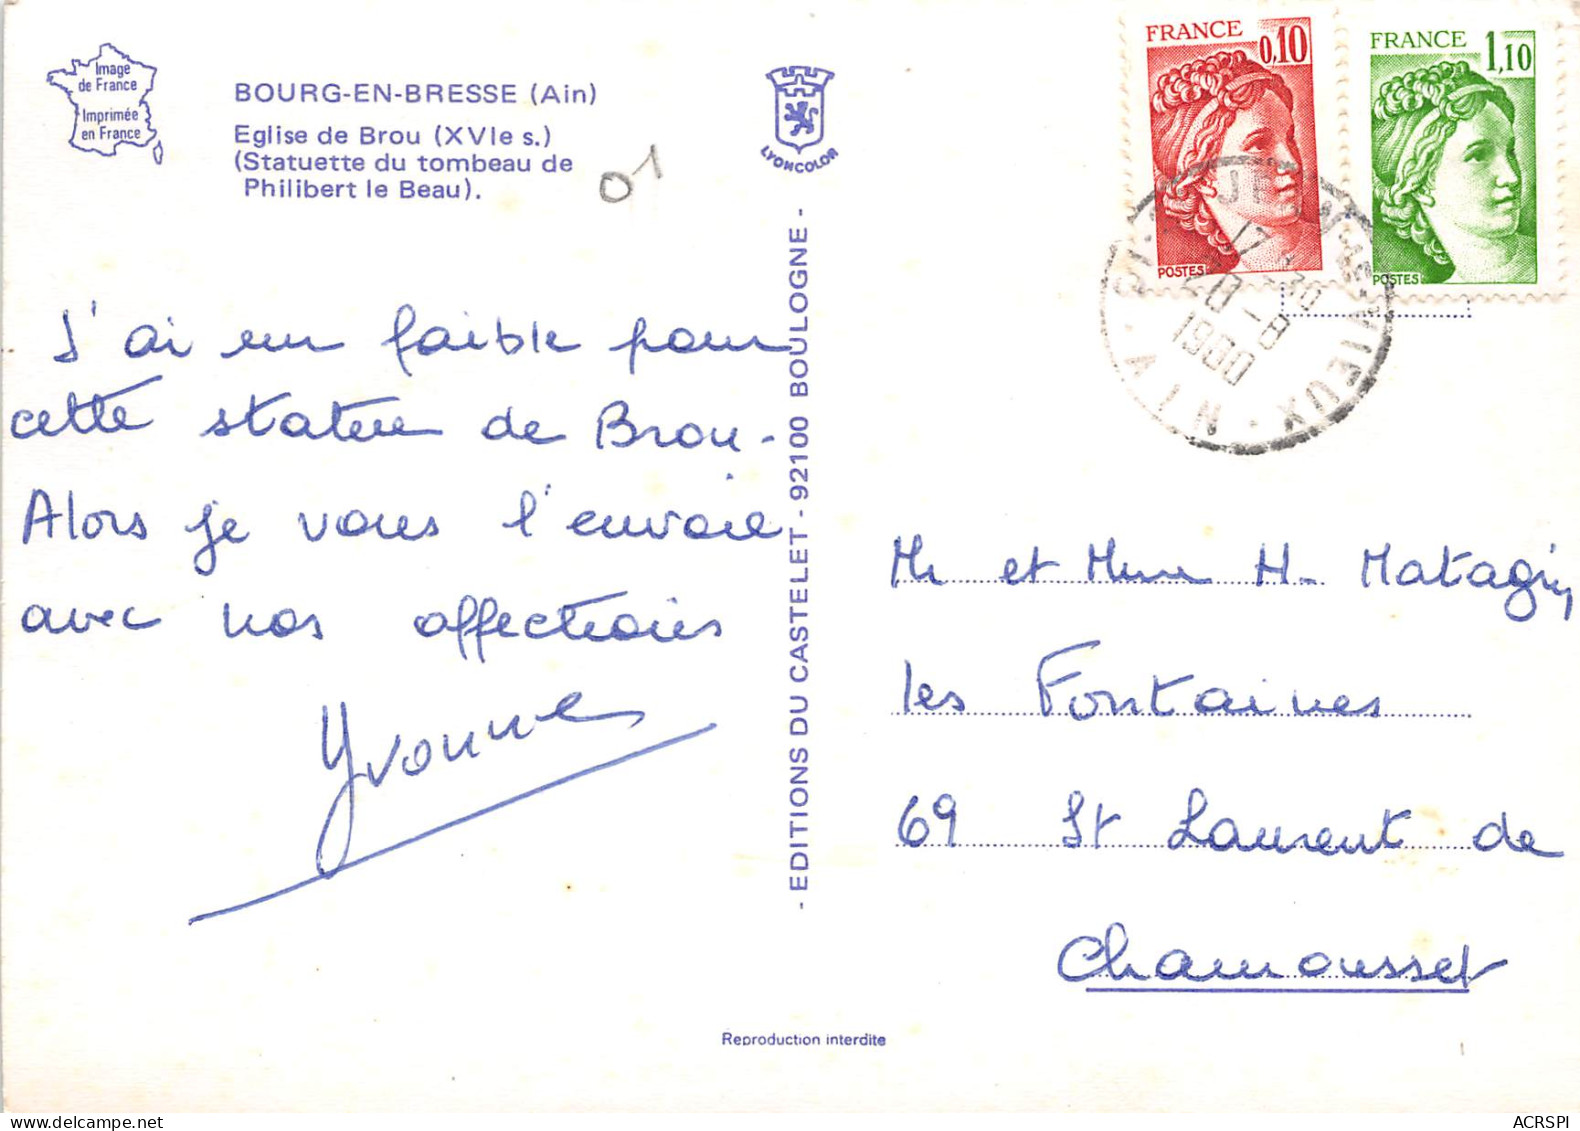 Image
de France
Imprimée
en France
BOURG-EN-BRESSE (Ain)
Eglise de Brou (XVIe s.)
(Statuette du tombeau de
Philibert le Beau).
01
LYONCOLOR
J'ai un faible pour
cette statue de Brou.
Alors je vous l'envoie
avec nos affections
Yvonne
- EDITIONS DU CASTELET - 92100 BOULOGNE -
FRANCE
0,10
POSTES
FRANCE
1,10
POSTES
17 30
20 - 8
1980
AIN
Mr et Mme H. Matagrin
les Fontaines
69 St Laurent de
Chamousset
Reproduction interdite
ACRSPI